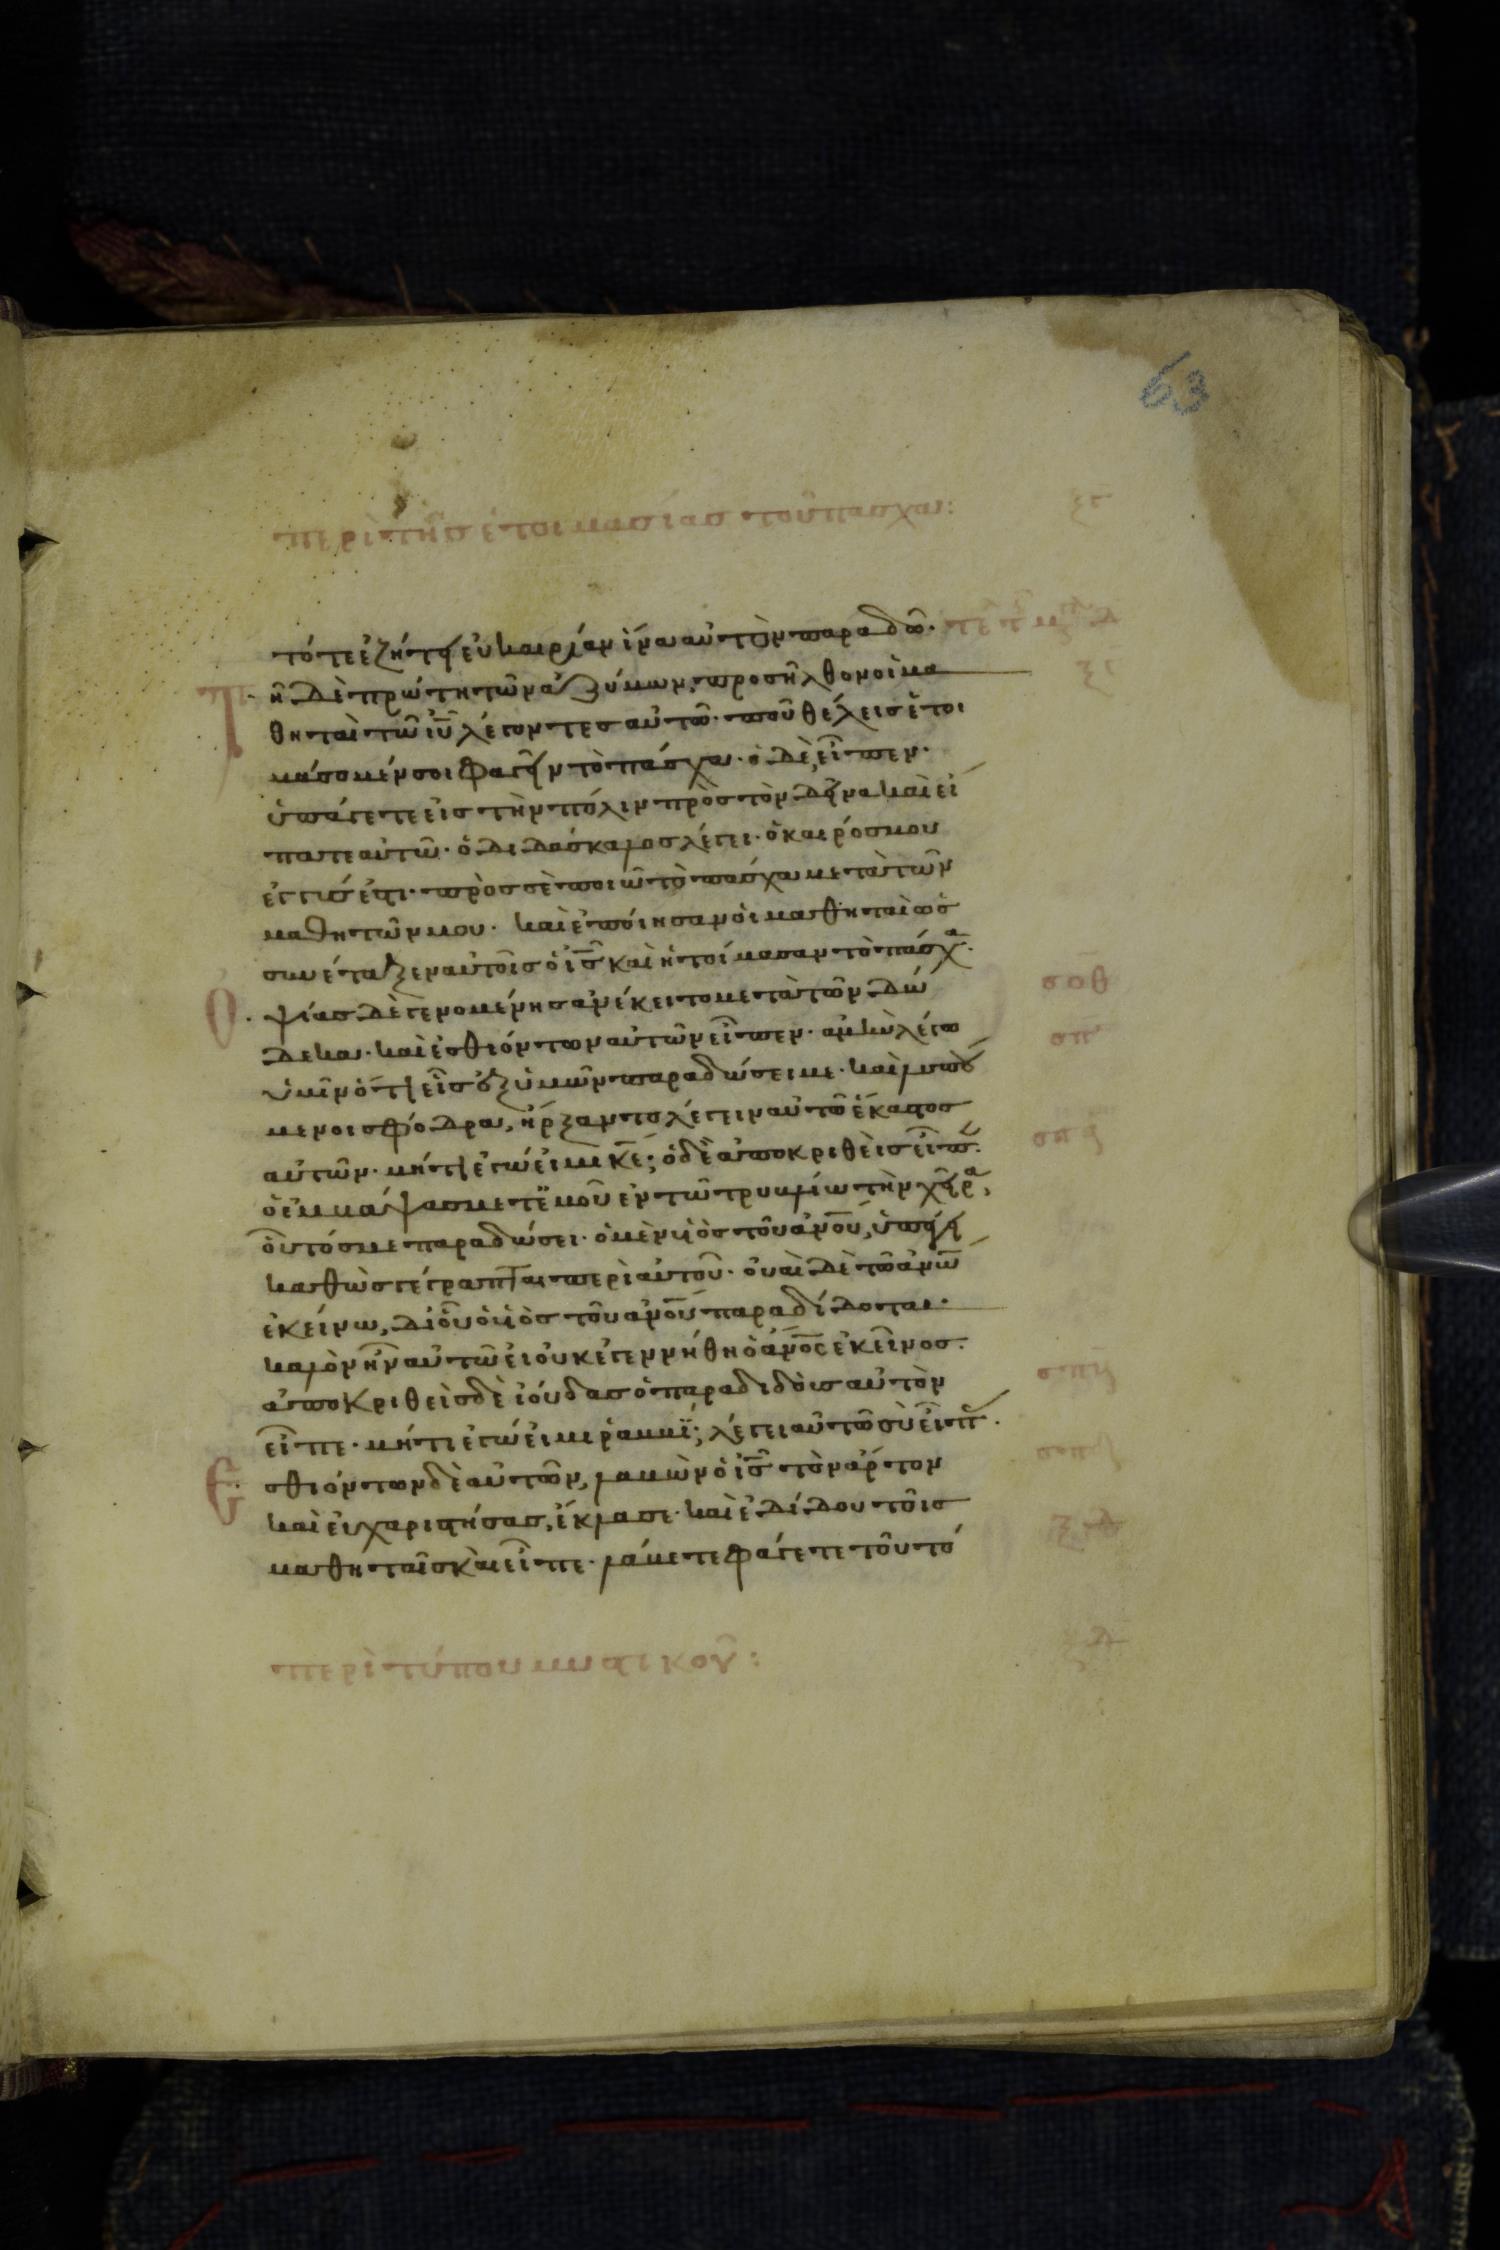 63
περὶ τῆς ἑτοιμασίας τοῦ πασχα:
τότε ἐζήτει εὐκαιρίαν ἵνα αὐτὸν παραδῶ·
τῆ δὲ πρώτη τῶν ἀζύμων, προσῆλθον οἱ μα
θηταὶ τῶ ἰῦ λέγοντες αὐτῶ· ποῦ θέλεις ἑτοι
μάσομέν σοι φαγεῖν τὸ πάσχα· ὁ δὲ, εἶπεν·
ὑπάγετε εἰς τὴν πόλιν πρὸς τὸν δεῖνα καὶ εἴ
πατε αὐτῶ· ὁ διδάσκαλος λέγει· ὁ καιρός μου
ἐγγύς ἐστι· πρὸς σὲ ποιῶ τὸ πάσχα μετὰ τῶν
μαθητῶν μου· καὶ ἐποίησαν οἱ μαθηταὶ ὡς
συνέταξεν αὐτοῖς ὁ ἰς καὶ ἡτοίμασαν τὸ πάσχα·
Ὀψίας δὲ γενομένης ἀνέκειτο μετὰ τῶν δώ
δεκα· καὶ ἐσθιόντων αὐτῶν εἶπεν· ἀμὴν λέγω
ὑμῖν ὅτι εἷς ἐξ ὑμῶν παραδώσει με· καὶ λυπού
μενοι σφόδρα, ἤρξαντο λέγειν αὐτῶ ἕκαστος
αὐτῶν· μήτι ἐγώ εἰμι κε; ὁ δὲ ἀποκριθεὶς εἶπεν·
ὁ ἐμβάψας μετ ἐμοῦ ἐν τῶ τρυβλίω τὴν χεῖρα,
οὗτός με παραδώσει· ὁ μὲν υἱὸς τοῦ ἀνου, ὑπάγει
καθὼς γέγραπται περὶ αὐτοῦ· οὐαὶ δὲ τῶ ἀνω
ἐκείνω, δι οὗ ὁ υἱὸς τοῦ ἀνου παραδίδοται·
καλὸν ἦν αὐτῶ εἰ οὐκ ἐγεννήθη ὁ ἀνος ἐκεῖνος·
ἀποκριθεὶς δὲ ἰούδας ὁ παραδιδοὺς αὐτὸν
εἶπε· μήτι ἐγώ εἰμι ῥαββί; λέγει αὐτῶ σὺ εἶπας·
Ἐσθιόντων δὲ αὐτῶν, λαβὼν ὁ ἰς τὸν ἄρτον
καὶ εὐχαριστήσας, ἔκλασε· καὶ ἐδίδου τοῖς
μαθηταῖς καὶ εἶπε· λάβετε φάγετε τοῦτό
περὶ τύπου μυστικοῦ: